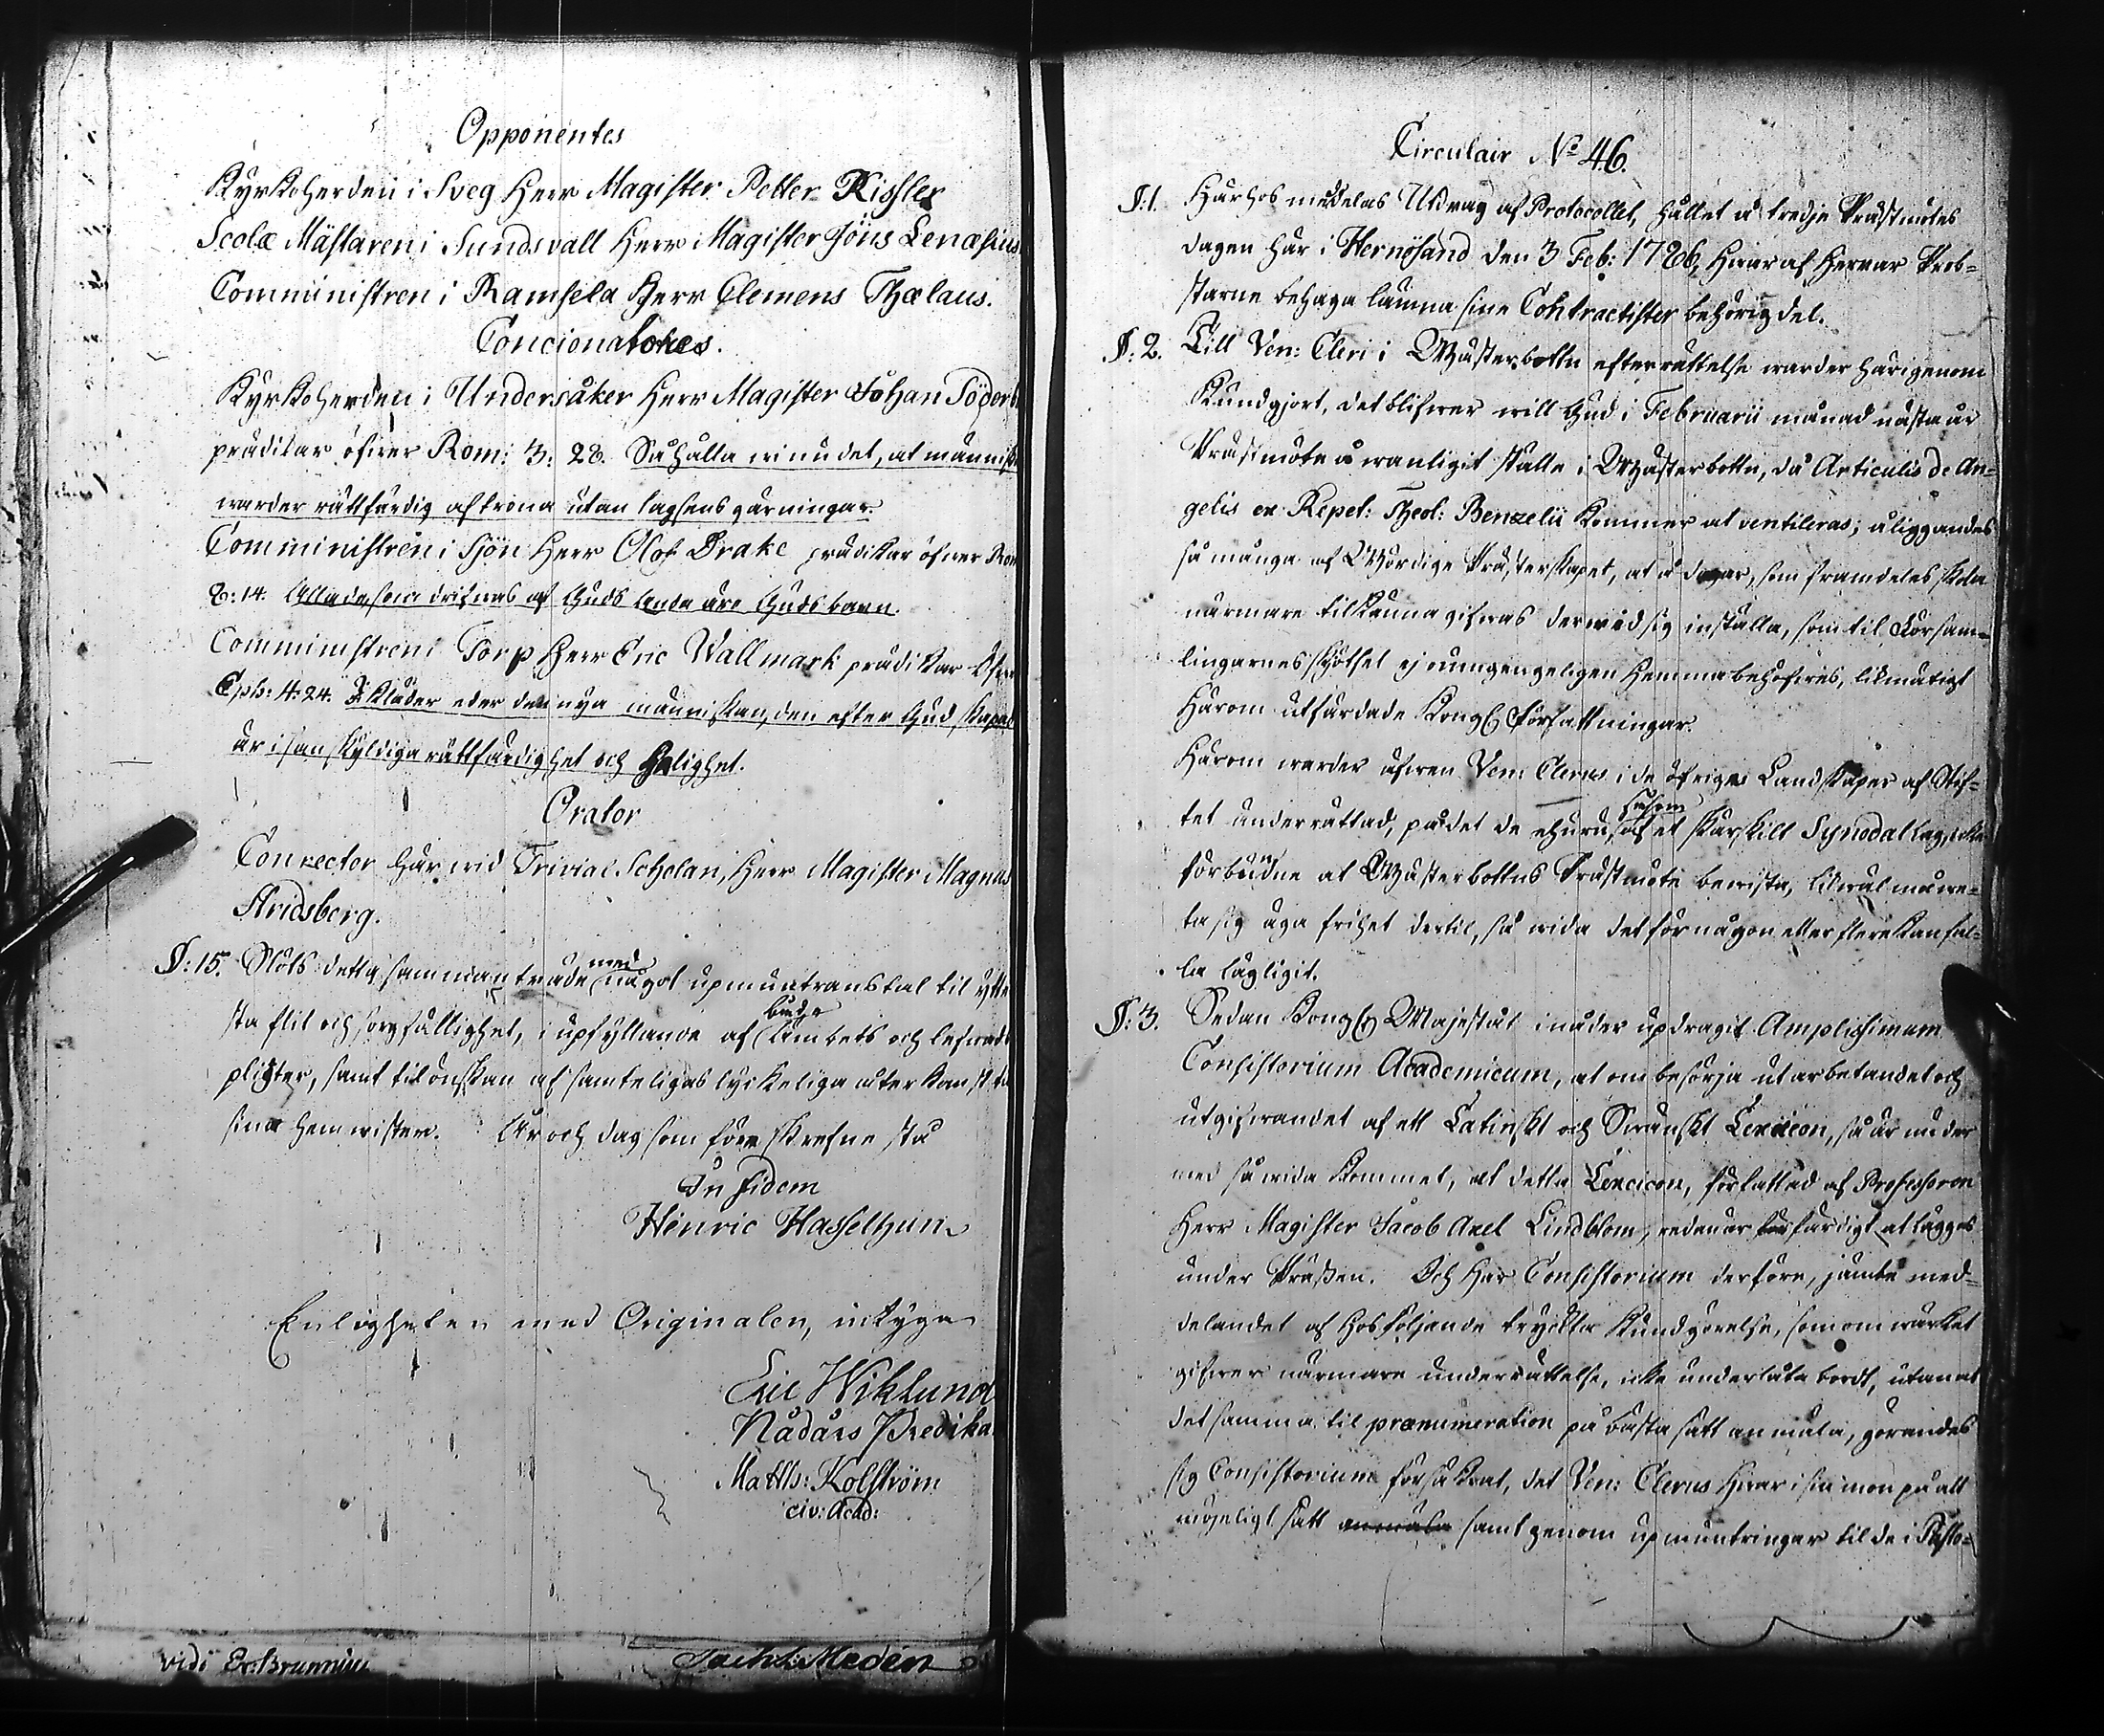 Opponentes
Kyrkoherden i Sveg Herr Magister Petter Rissler
Scolæ Mästaren i Sundsvall Herr Magister Jöns Lenæsius
Comministren i Ramsela Herr Clemens Thelaus.
Concionatores.
Kyrkoherden i Undersåker Herr Magister Johan Söderb
prädikar öfwer Rom: 3: 28. Så hålle wi nu det, at människ
warder rättfärdig af trona utan lagsens gärningar.
Comministren i Sjön Herr Olof Drake prädikar öfwer Rom
8: 14. Alla de som drifwas af Guds Anda äro Guds barn.
Comministren i Torp Herr Eric Wallmark prädikar öfwer
Eph: 4: 24. Ikläder eder den nya människan, den efter Gud skapad
är i sanskyldiga rättfärdighet och helighet.
Orator
Conrector här wid Trivial Scholan, Herr Magister Magnus
Aridsberg.
§: 15. Slöts detta sammanträde med något upmuntranstal til ytter
sta flit och sorgfällighet, i upfyllande af både Ämbets och lefnads
pligter, samt tilönskan af samteligas lyckeliga återkomst til
sina hemwister. År och dag som förr skrefne stå
In fidem
Henric Hasselhuhn
Enligheten med Originalen, intyga
Eric Wiklund
Nådårs Predika
Matth: Kolström
civ: Acad:
vidi Er: Brunnius
Medén
Circulair No 46.
§: 1. Härhos meddelas Utdrag af Protocollet, hållet å tredje Prästmötes
dagen här i Hernösand den 3 Feb: 1786, hwaraf Herrar Prob=
starne behaga lämna sine Contractister behörig del.
§: 2. Till Ven: Cleri i Wästerbottn efterrättelse warder härigenom
kundgjort, det blifwer will Gud i Februarii månad nästa år
Prästmöte å wanligit ställe i Wästerbottn, då Articulis de An=
gelis ex Repet: Theol: Benzelii kommer at ventileras; åliggandes
så många af Wördige Prästerskapet, at å dagar, som framdeles skola
närmare tilkänna gifwas derwid sig inställa, som til Församm=
lingarnes skötsel ej oumgengeligen hemma behöfwes, likmätigt
härom utfärdade Kongl. författningar.
Härom warder äfwen Ven: Clerus i de öfriga Landskaper af Stif=
tet underrättad, på det de ehuru, såsom af et särskilt Synodallag, icke
förbudne at Wästerbottns Prästmöte bewista, likwäl må we=
ta sig äga frihet dertil, så wida det för någon eller flere kan fal=
la lägligit.
§: 3. Sedan Kongl. Majestät i nåder updragit Amplissimum
Consistorium Academicum, at om besörja utarbetandet och
utgifwandet af ett Latinskt och Swänskt Lexicon, så är nu der
med så wida kommet, at detta Lexicon, författad af Professoren
Herr Magister Jacob Axel Lindblom, redan är färdigt at läggas
under Prässen. Och har Consistorium derföre, jämte med=
delandet af hosföljande tryckta Kundgörelse, som om wärket
gifwer närmare underrättelse, icke underlåta bordt, utan at
det samma til prænumeration på bästa sätt anmäla, görandes
sig Consistorium försäkrat, det Ven: Clerus hwar i sin mon på alt
möjeligt sätt anmäla samt genom upmuntringar til de i Pasto=